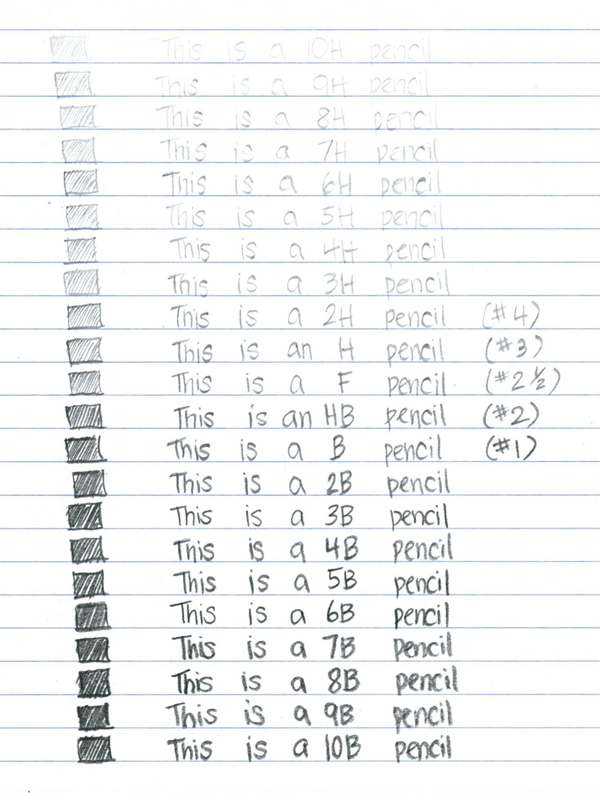 This is a 10H pencil
This is a 9H pencil
This is a 8H pencil
This is a 7H pencil
This is a 6H pencil
This is a 5H pencil
This is a 4H pencil
This is a 3H pencil
This is a 2H pencil (#4)
This is an H pencil (#3)
This is a F pencil (#2½)
This is an HB pencil (#2)
This is a B pencil (#1)
This is a 2B pencil
This is a 3B pencil
This is a 4B pencil
This is a 5B pencil
This is a 6B pencil
This is a 7B pencil
This is a 8B pencil
This is a 9B pencil
This is a 10B pencil